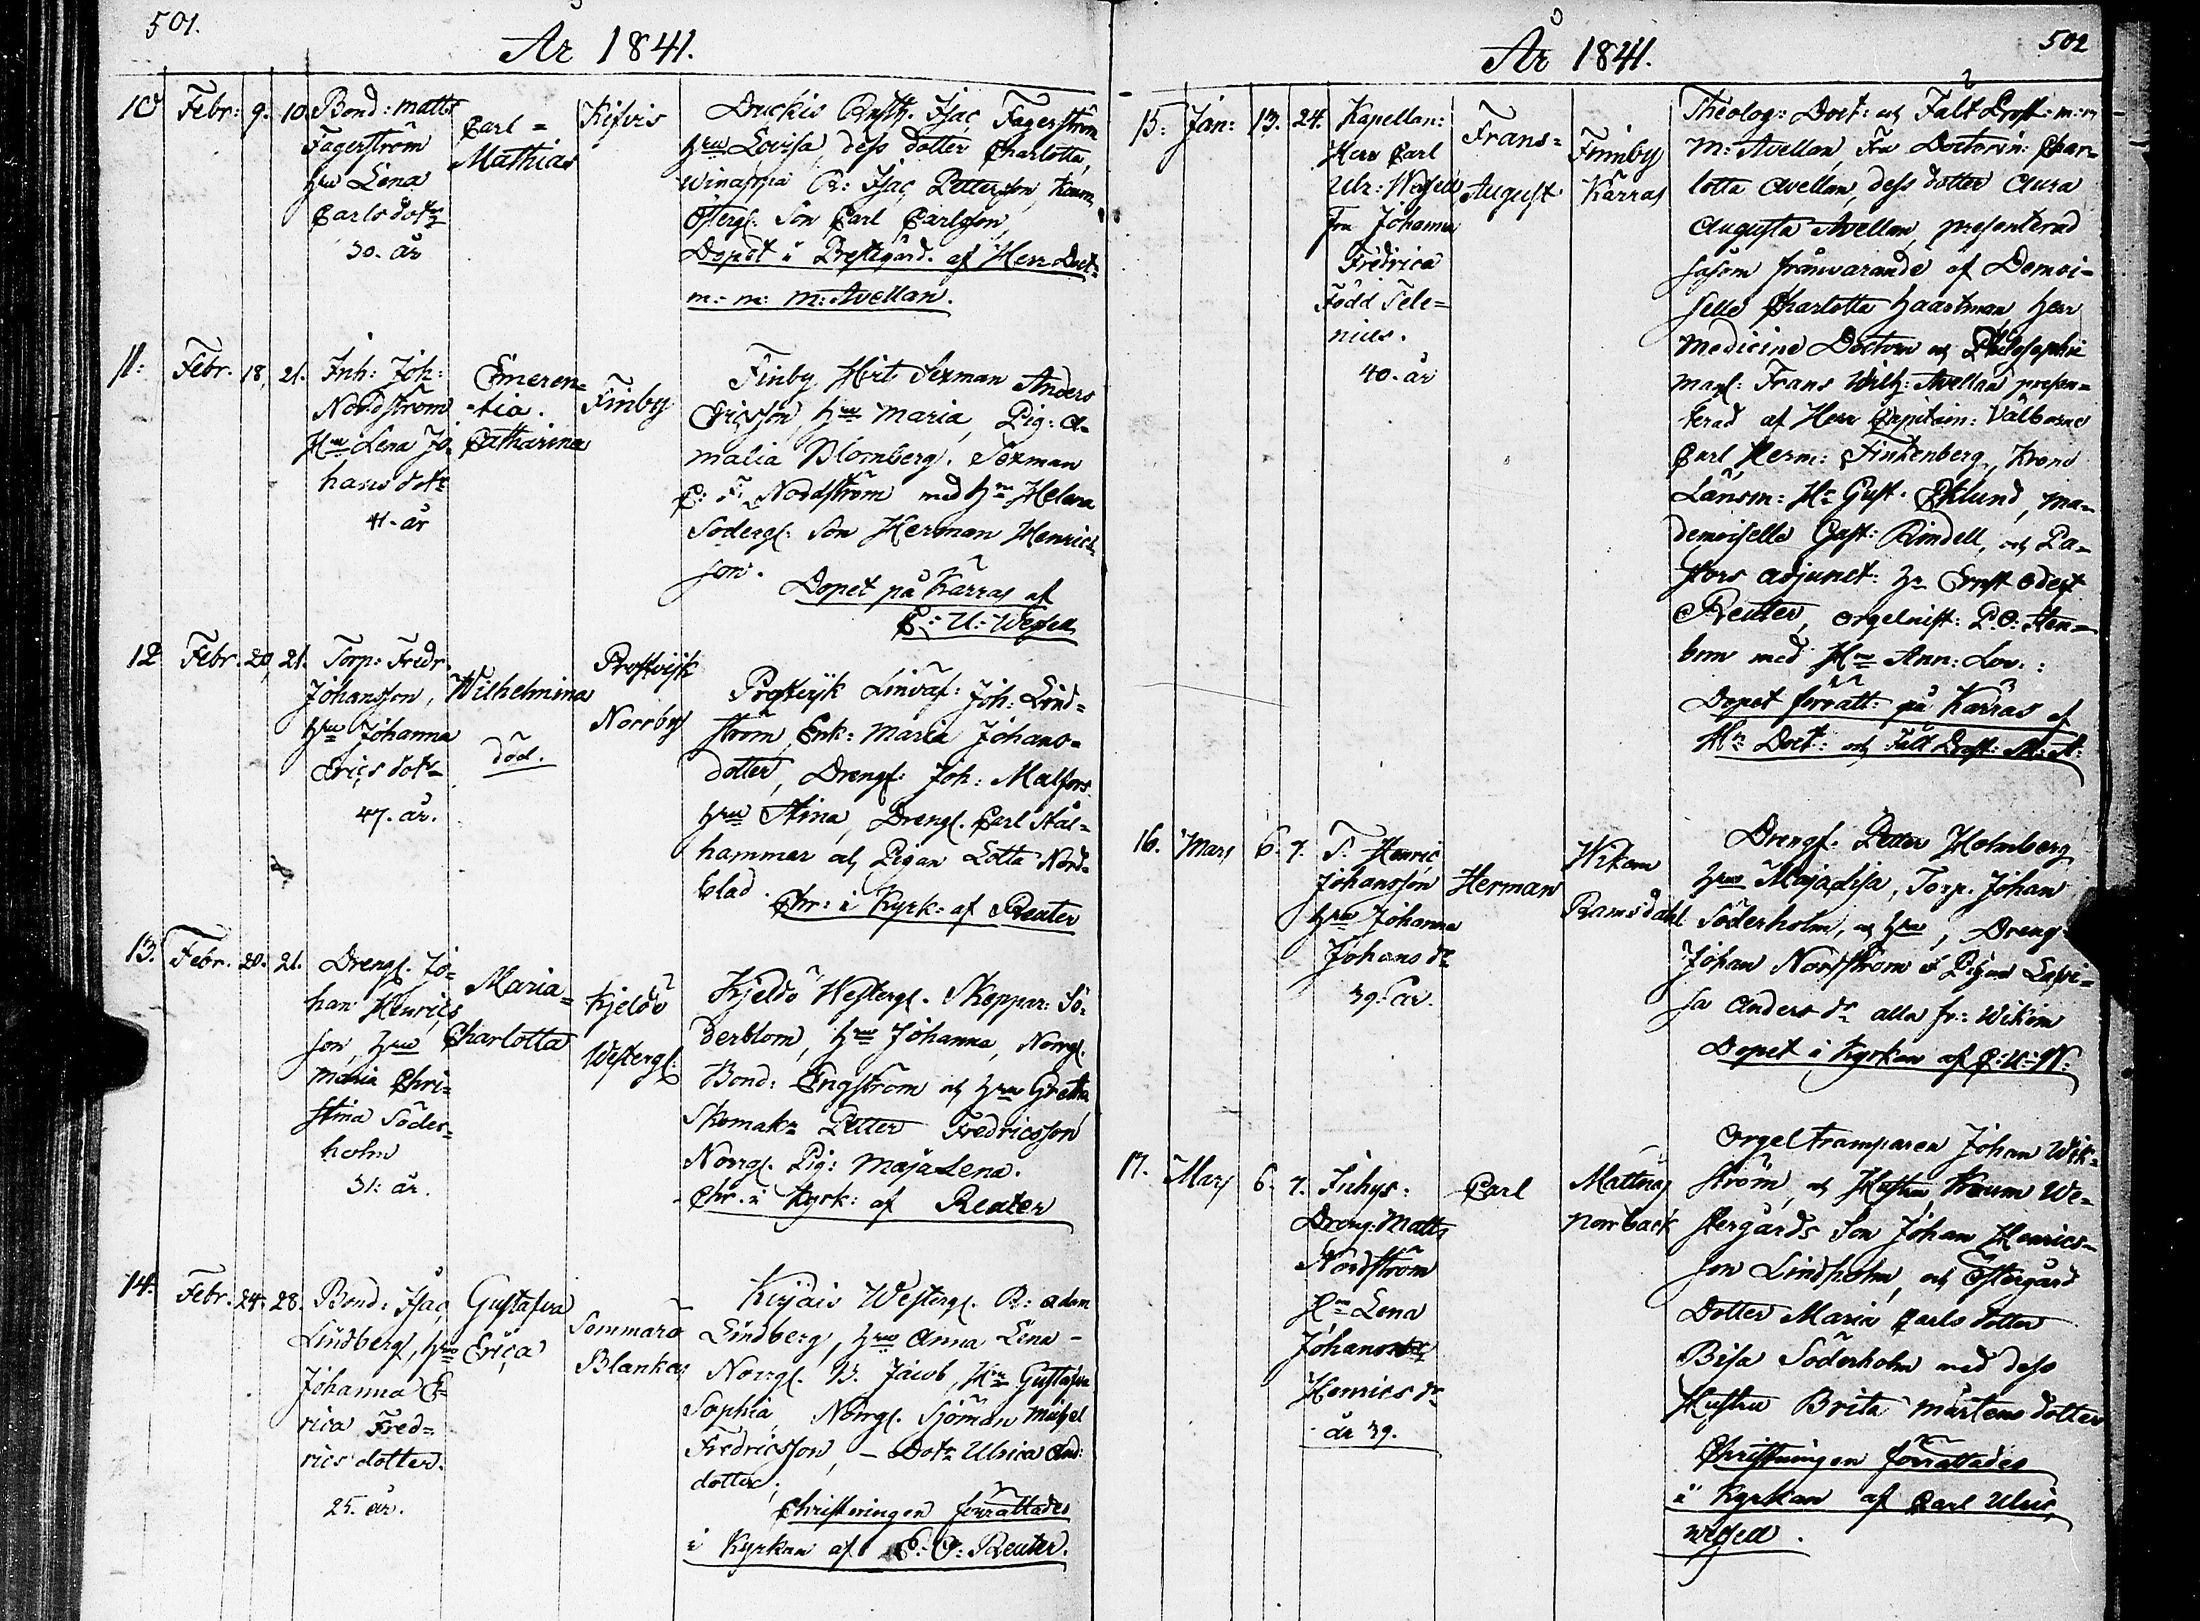 501.
År 1841.
10 Febr: 9. 10.
Bond: Matts
Fagerström
hru Lena
Carlsdotr
30. år
Carl =
Mathias
Kifvis
Isac Fagerström
hru Lovisa, dess dotter Charlotta,
B: Isac Pettersson,
Österg: Son Carl Carlsson,
Dopet i Prestgård. af Herr Doct:
m: m: M: Avellan.
11: Febr. 18, 21.
Inh: Joh:
Nordström
Hru Lena Jo
hans dotr
41. år
Emeren=
=tia.
Catharina
Finby
Finby Sexman Anders
Ericsson, hru Maria, Pig: A=
malia Blomberg. Sexman
C: F. Nordström med hru Helena
Söderg: Son Herman Henrics
son.
Dopet på Kärras af
C: U: Wegell
12 Febr. 20, 21.
Torp: Fredr.
Johansson,
hru Johanna
Erics dotr
47. år.
Wilhelmina
död.
Prostvik
Norrby
Prostvik Joh: Lind=
ström, Enk: Maria Johans=
dotter, Drengs: Joh: Malfors
hru Stina, Drengs. Carl Stål=
hammar och Pigan Lotta Nord=
blad.
Chr: i Kyrk: af Reuter
13. Febr. 20. 21.
Drengs. Jo=
han Henrics
son, hru
Maria Chri=
stina Söder=
holm
31: år.
Maria=
Charlotta
Kjeldö
Westergs:
Kjeldö Westergs. Skeppar: Sö=
derblom, hru Johanna, Norrgs.
Bond: Engström och hru Greta
Skomakr Petter Fredricsson
Norrgs. Pig: Maja Lena.
Chr. i Kyrk: af Reuter
14. Febr. 24. 28.
Bond: Isac
Lindberg, hru
Johanna E=
rica Fred=
rics dotter.
25. år.
Gustafva
Erica
Sommarö
Blankas
Kirjais Westergs. B: Adam
Lindberg, hru Anna Lena -
Norrgs. B. Jacob, Hru Gustafva
Sophia, Norrgs. Sjöman Michel
Fredricsson, - Dotr Ulrica And:
dotter.
Christningen förrättades
i Kyrkan af E: O: Reuter.
502
År 1841.
15. Jan: 13. 24.
Kapellan:
Herr Carl
Ulr: Wegell
Fru Johanna
Fredrica
Född Sele=
nius.
40. år
Frans=
August
Finnby
Kärras
Theolog: Doct: och Fält Prost m: m
M: Avellan, Fru Doctorin: Char=
lotta Avellan, dess dotter Aura
Augusta Avellan, presenterad
såsom frånvarande af Demoi=
selle Charlotta Haartman, Herr
Medicine Doctorn och Philosophie
Mag: Frans Wilh: Avellan presen=
terad af Herr Capitain: Välborne
Carl Herm: Finkenberg, Krono
Länsm: Hr Gust. Eklund, Ma=
demoiselle Gust: Rindell, och Pa=
stors adjunct: Hr Ernst Odert
Reuter, orgelnist: P. O: Sten=
bom med Hru Ann: Lov. :
Dopet förrätt: på Kärras af
Hr Doct: och Fält Prost: M: A:
16. Mars 6. 7.
T. Henric
Johansson
hru Johanna
Johans dr
39. år.
Herman
Wikom
Ramsdahl
Drengs. Petter Holmberg
hru Majalisa, Torp. Johan
Söderholm, och hru, Dreng
Johan Nordström o Pigan Lovi=
sa Anders dr alla fr: Wikom
Dopet i Kyrkan af C: U: W:
17. Mars 6. 7.
Inhys:
Dreng. Matts
Nordström
Hru Lena
Henrics dr
år 39.
Carl
Mattnäs
Norrback
Orgeltramparen Johan Wik=
ström, och Hustru We=
stergårds Son Johan Henrics=
son Lindholm, och Östergård
Dotter Maria Carls dotter
Söderholm med dess
Hustru Brita Mårtens dotter
Christningen förrättades
i Kyrkan af Carl Ulric
Wegell.